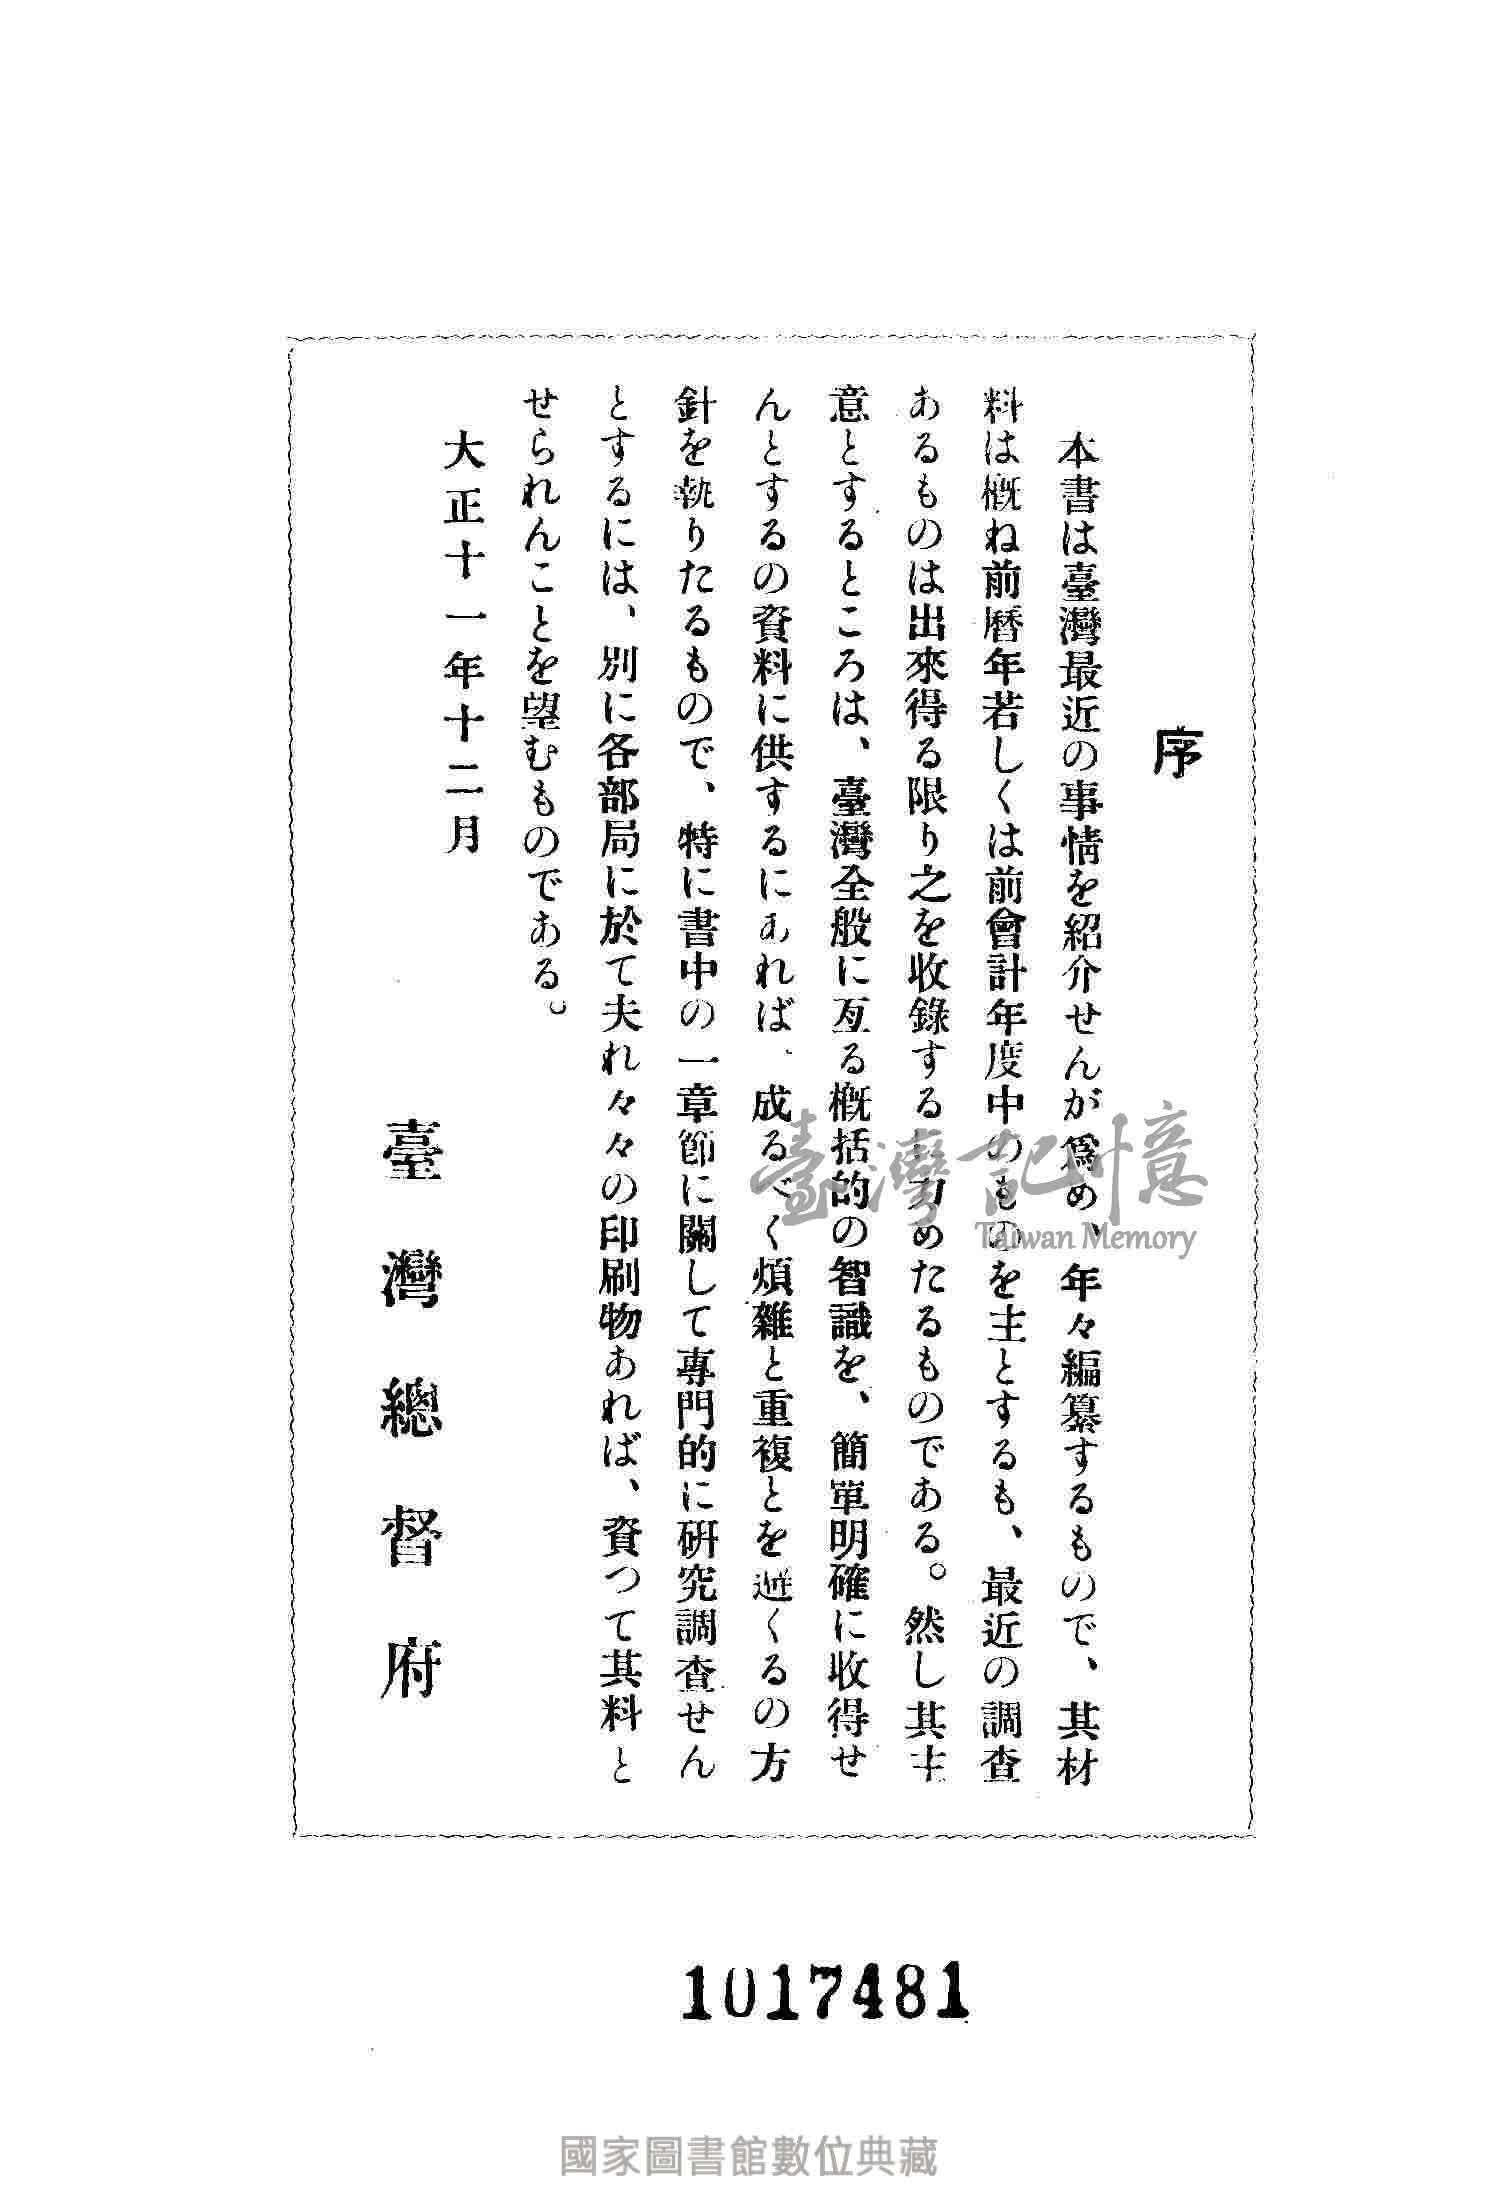 序
本書は臺灣最近の事情を紹介せんが爲め、年々編纂するもので、其材
料は概ね前曆年若しくは前會計年度中のものを主とするも、最近の調査
あるものは出來得る限り之を收錄するに力めたるものである。然し其主
意とするところは、臺灣全般に亙る概括的の智識を、簡單明確に收得せ
んとするの資料に供するにあれば、成るべく煩雜と重複とを避くるの方
針を執りたるもので、特に書中の一章節に關して專門的に硏究調査せん
とするには、別に各部局に於て夫れ々々の印刷物あれば、資つて其料と
せられんことを望むものである。
大正十一年十二月
臺灣總督府
臺灣記憶
Taiwan Memory
1017481
國家圖書館數位典藏